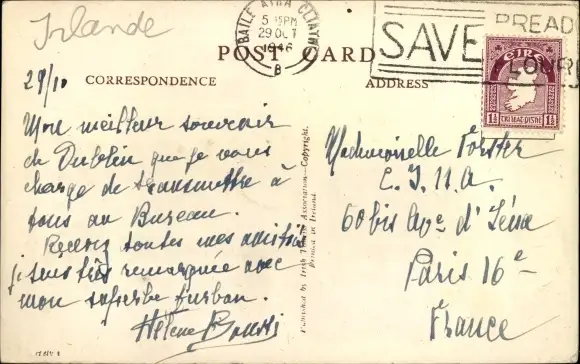 Irlande
BAILE ÁTHA CLIATH
5 15PM
29 OCT
1946
B
SAVE BREAD
FLOUR
EIRE
1½ 1½
POST CARD
29/10
CORRESPONDENCE
ADDRESS
Mon meilleur souvenir
de Dublin que je vous
charge de transmettre à
tous au Bureau.
Recevez toutes mes amitiés
je suis très remarquée avec
mon superbe turban.
Hélène
Published by Irish Tourist Association—Copyright.
Printed in Ireland.
Mademoiselle Forster
60 bis Ave d'Iéna
Paris 16e
France